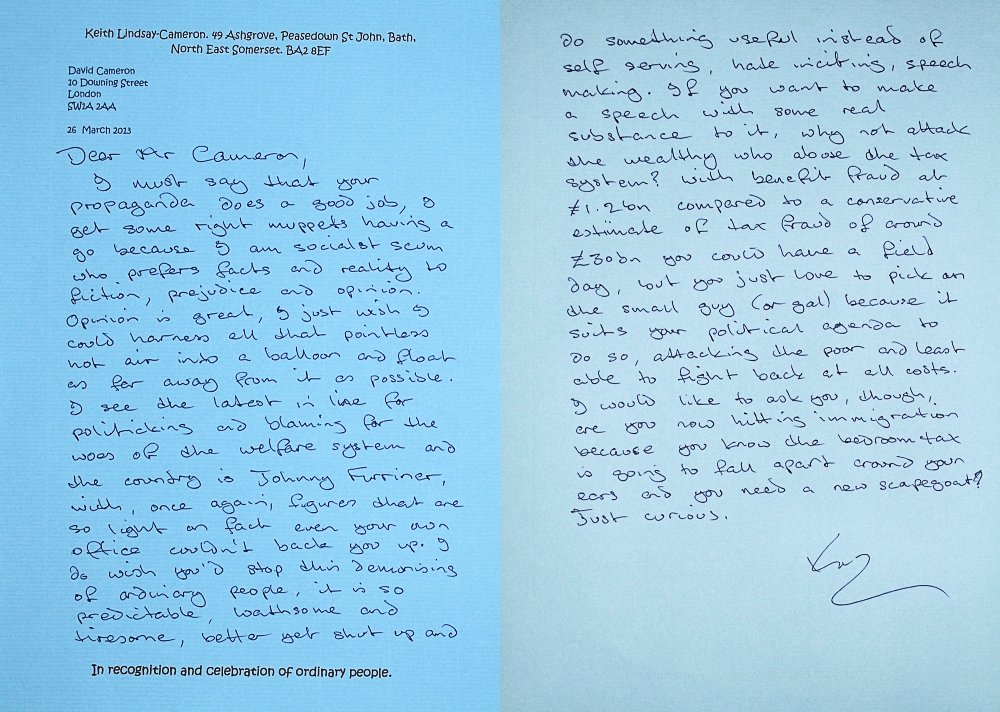 Keith Lindsay-Cameron. 49 Ashgrove, Peasedown St John, Bath,
North East Somerset. BA2 8EF
David Cameron
10 Downing Street
London
SW1A 2AA
26 March 2013
Dear Mr Cameron,
I must say that your
propaganda does a good job, I
get some right muppets having a
go because I am socialist scum
who prefers facts and reality to
fiction, prejudice and opinion.
Opinion is great, I just wish I
could harness all that pointless
hot air into a balloon and float
as far away from it as possible.
I see the latest in line for
politicking and blaming for the
woes of the welfare system and
the country is Johnny Furriner,
with, once again, figures that are
so light on fact even your own
office couldn't back you up. I
do wish you'd stop this demonising
of ordinary people, it is so
predictable, loathsome and
tiresome, better yet shut up and
In recognition and celebration of ordinary people.
do something useful instead of
self serving, hate inciting, speech
making. If you want to make
a speech with some real
substance to it, why not attack
the wealthy who abuse the tax
system? With benefit fraud at
£1.2bn compared to a conservative
estimate of tax fraud of around
£30bn you could have a field
day, but you just love to pick on
the small guy (or gal) because it
suits your political agenda to
do so, attacking the poor and least
able to fight back at all costs.
I would like to ask you, though,
are you now hitting immigration
because you know the bedroom tax
is going to fall apart around your
ears and you need a new scapegoat?
Just curious.